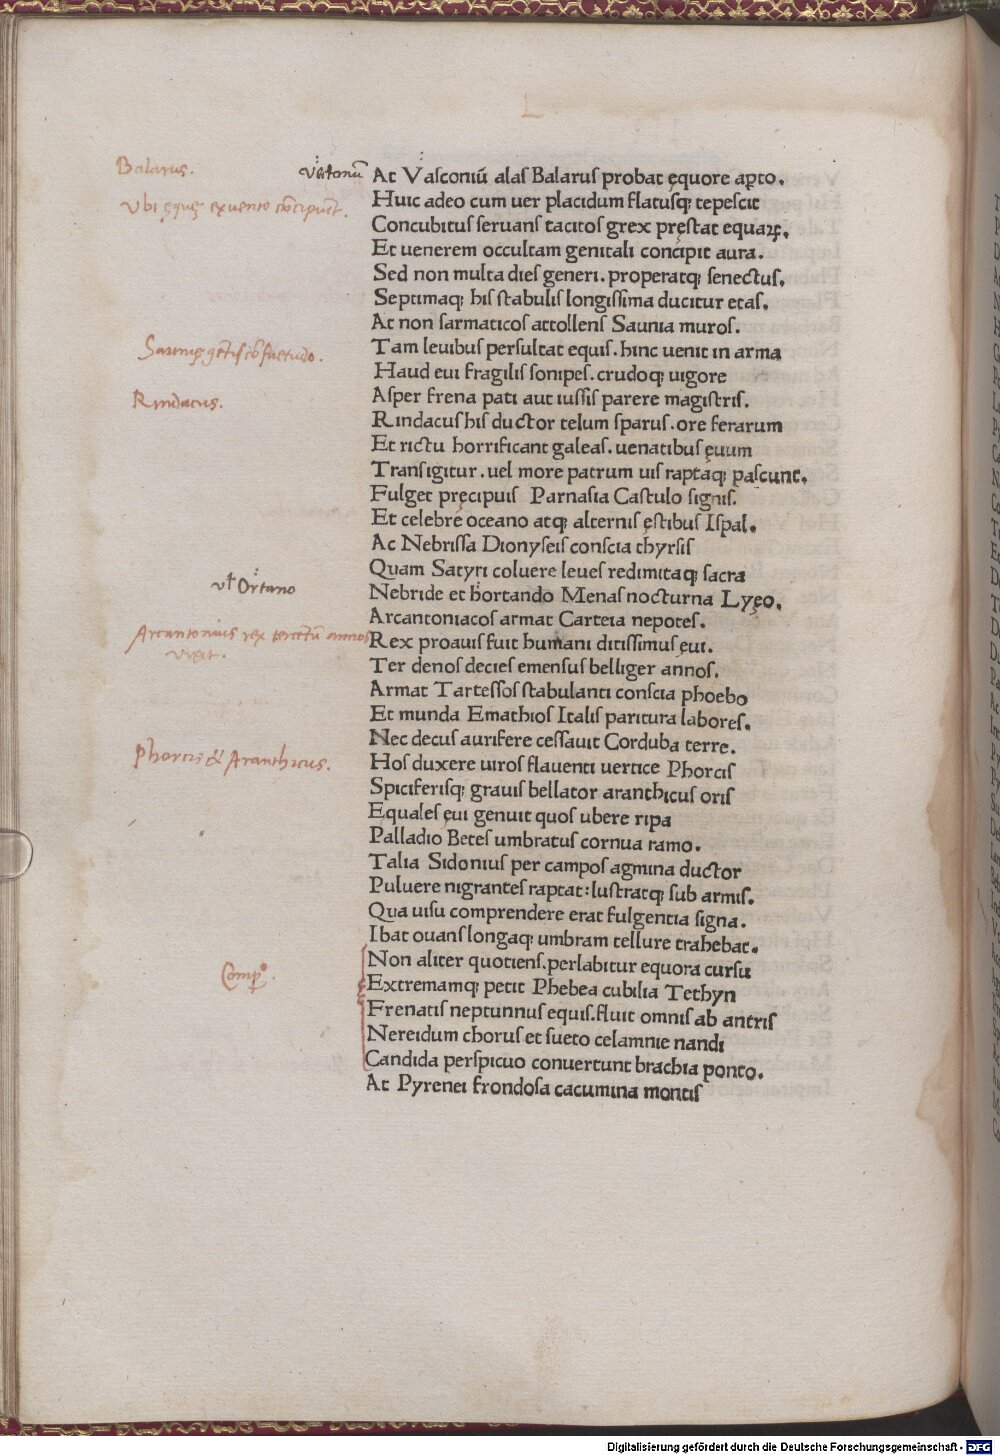 Balarus.
Vectonū
At Vasconiū alas Balarus probat ęquore aꝑto.
Vbi ęquę ex uento concipiunt.
Huic adeo cum uer placidum flatusq; tepescit
Concubitus seruans tacitos grex pręstat equaꝝ.
Et uenerem occultam genitali concipit aura.
Sed non multa dies generi. properatq; senectus.
Septimaq; his stabulis longissima ducitur etas.
At non sarmaticos attollens Saunia muros.
Saunię gentis consuetudo.
Tam leuibus persultat equis. hinc uenit in arma
Haud eui fragilis sonipes. crudoq; uigore
Rindacus.
Asper frena pati aut iussis parere magistris.
Rindacus his ductor telum sparus. ore ferarum
Et rictu horrificant galeas. uenatibus ęuum
Transigitur. uel more patrum uis raptaq; pascunt.
Fulget pręcipuis Parnasia Castulo signis.
Et celebre oceano atq; alternis ęstibus Ispal.
Ac Nebrissa Dionyseis conscia thyrsis
Quam Satyri coluere leues redimitaq; sacra
vl Ortano
Nebride et hortando Menas nocturna Lyęo.
Arcantoniacos armat Carteia nepotes.
Arcantonius rex tercentū annos
uixit.
Rex proauis fuit humani ditissimus ęui.
Ter denos decies emensus belliger annos.
Armat Tartessos stabulanti conscia phoebo
Et munda Emathios Italis paritura labores.
Nec decus aurifere cessauit Corduba terre.
Phorcis & Aranthicus.
Hos duxere uiros flauenti uertice Phorcis
Spiciferisq; grauis bellator aranthicus oris
Equales ęui genuit quos ubere ripa
Palladio Betes umbratus cornua ramo.
Talia Sidonius per campos agmina ductor
Puluere nigrantes raptat: lustratq; sub armis.
Qua uisu comprendere erat fulgentia signa.
Ibat ouans longaq; umbram tellure trahebat.
Compᵒ.
Non aliter quotiens. perlabitur equora cursu
Extremamq; petit Phebea cubilia Tethyn
Frenatis neptunnus equis. fluit omnis ab antris
Nereidum chorus et sueto celamnie nandi
Candida perspicuo conuertunt brachia ponto.
At Pyrenei frondosa cacumina montis
Digitalisierung gefördert durch die Deutsche Forschungsgemeinschaft - DFG